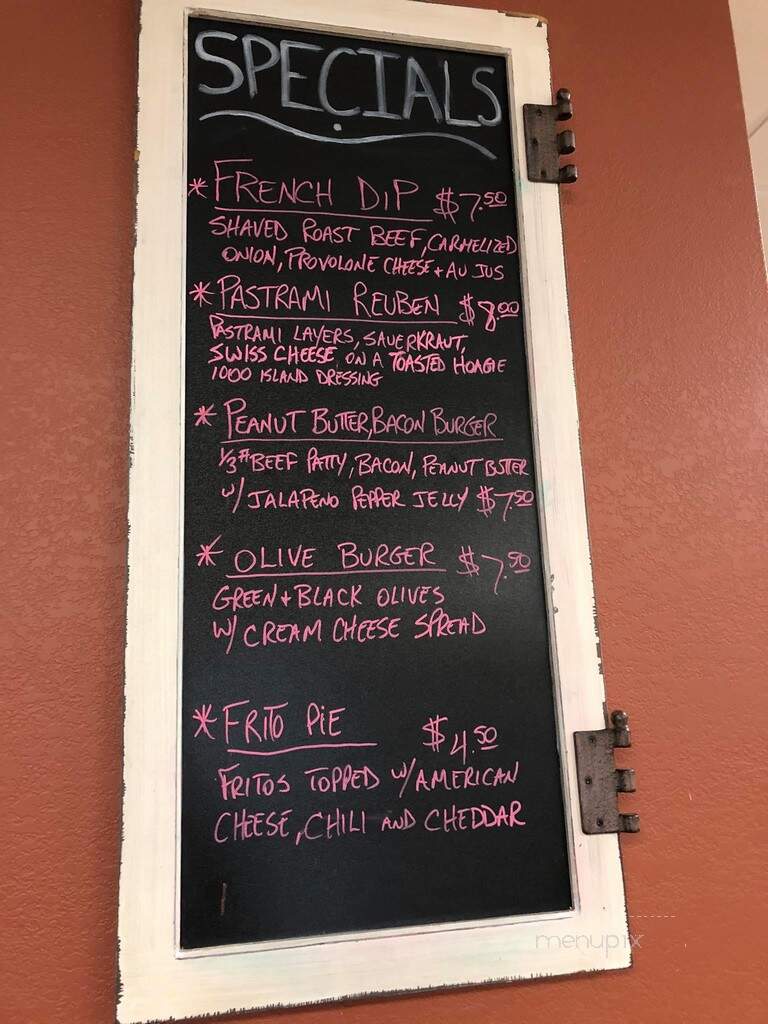 SPECIALS
* FRENCH DIP $7.50
SHAVED ROAST BEEF, CARMELIZED
ONION, PROVOLONE CHEESE + AU JUS
* PASTRAMI REUBEN $8.00
PASTRAMI LAYERS, SAUERKRAUT,
SWISS CHEESE, ON A TOASTED HOAGIE
1000 ISLAND DRESSING
* PEANUT BUTTER, BACON BURGER
1/3# BEEF PATTY, BACON, PEANUT BUTTER
W/ JALAPENO PEPPER JELLY $7.50
* OLIVE BURGER $7.50
GREEN + BLACK OLIVES
W/ CREAM CHEESE SPREAD
* FRITO PIE $4.50
FRITOS TOPPED W/ AMERICAN
CHEESE, CHILI AND CHEDDAR
menupix